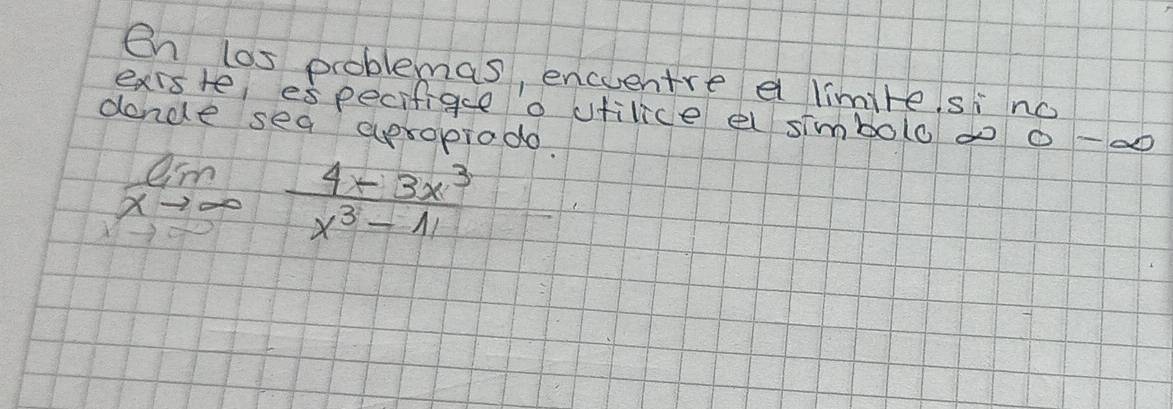 En los problemas, encuentre el limite, si no
existe, especifique o utilice el simbolo ∞ o -∞
donde sea apropiado.
lim 4 - 3x³
x → ∞ x³ - 1